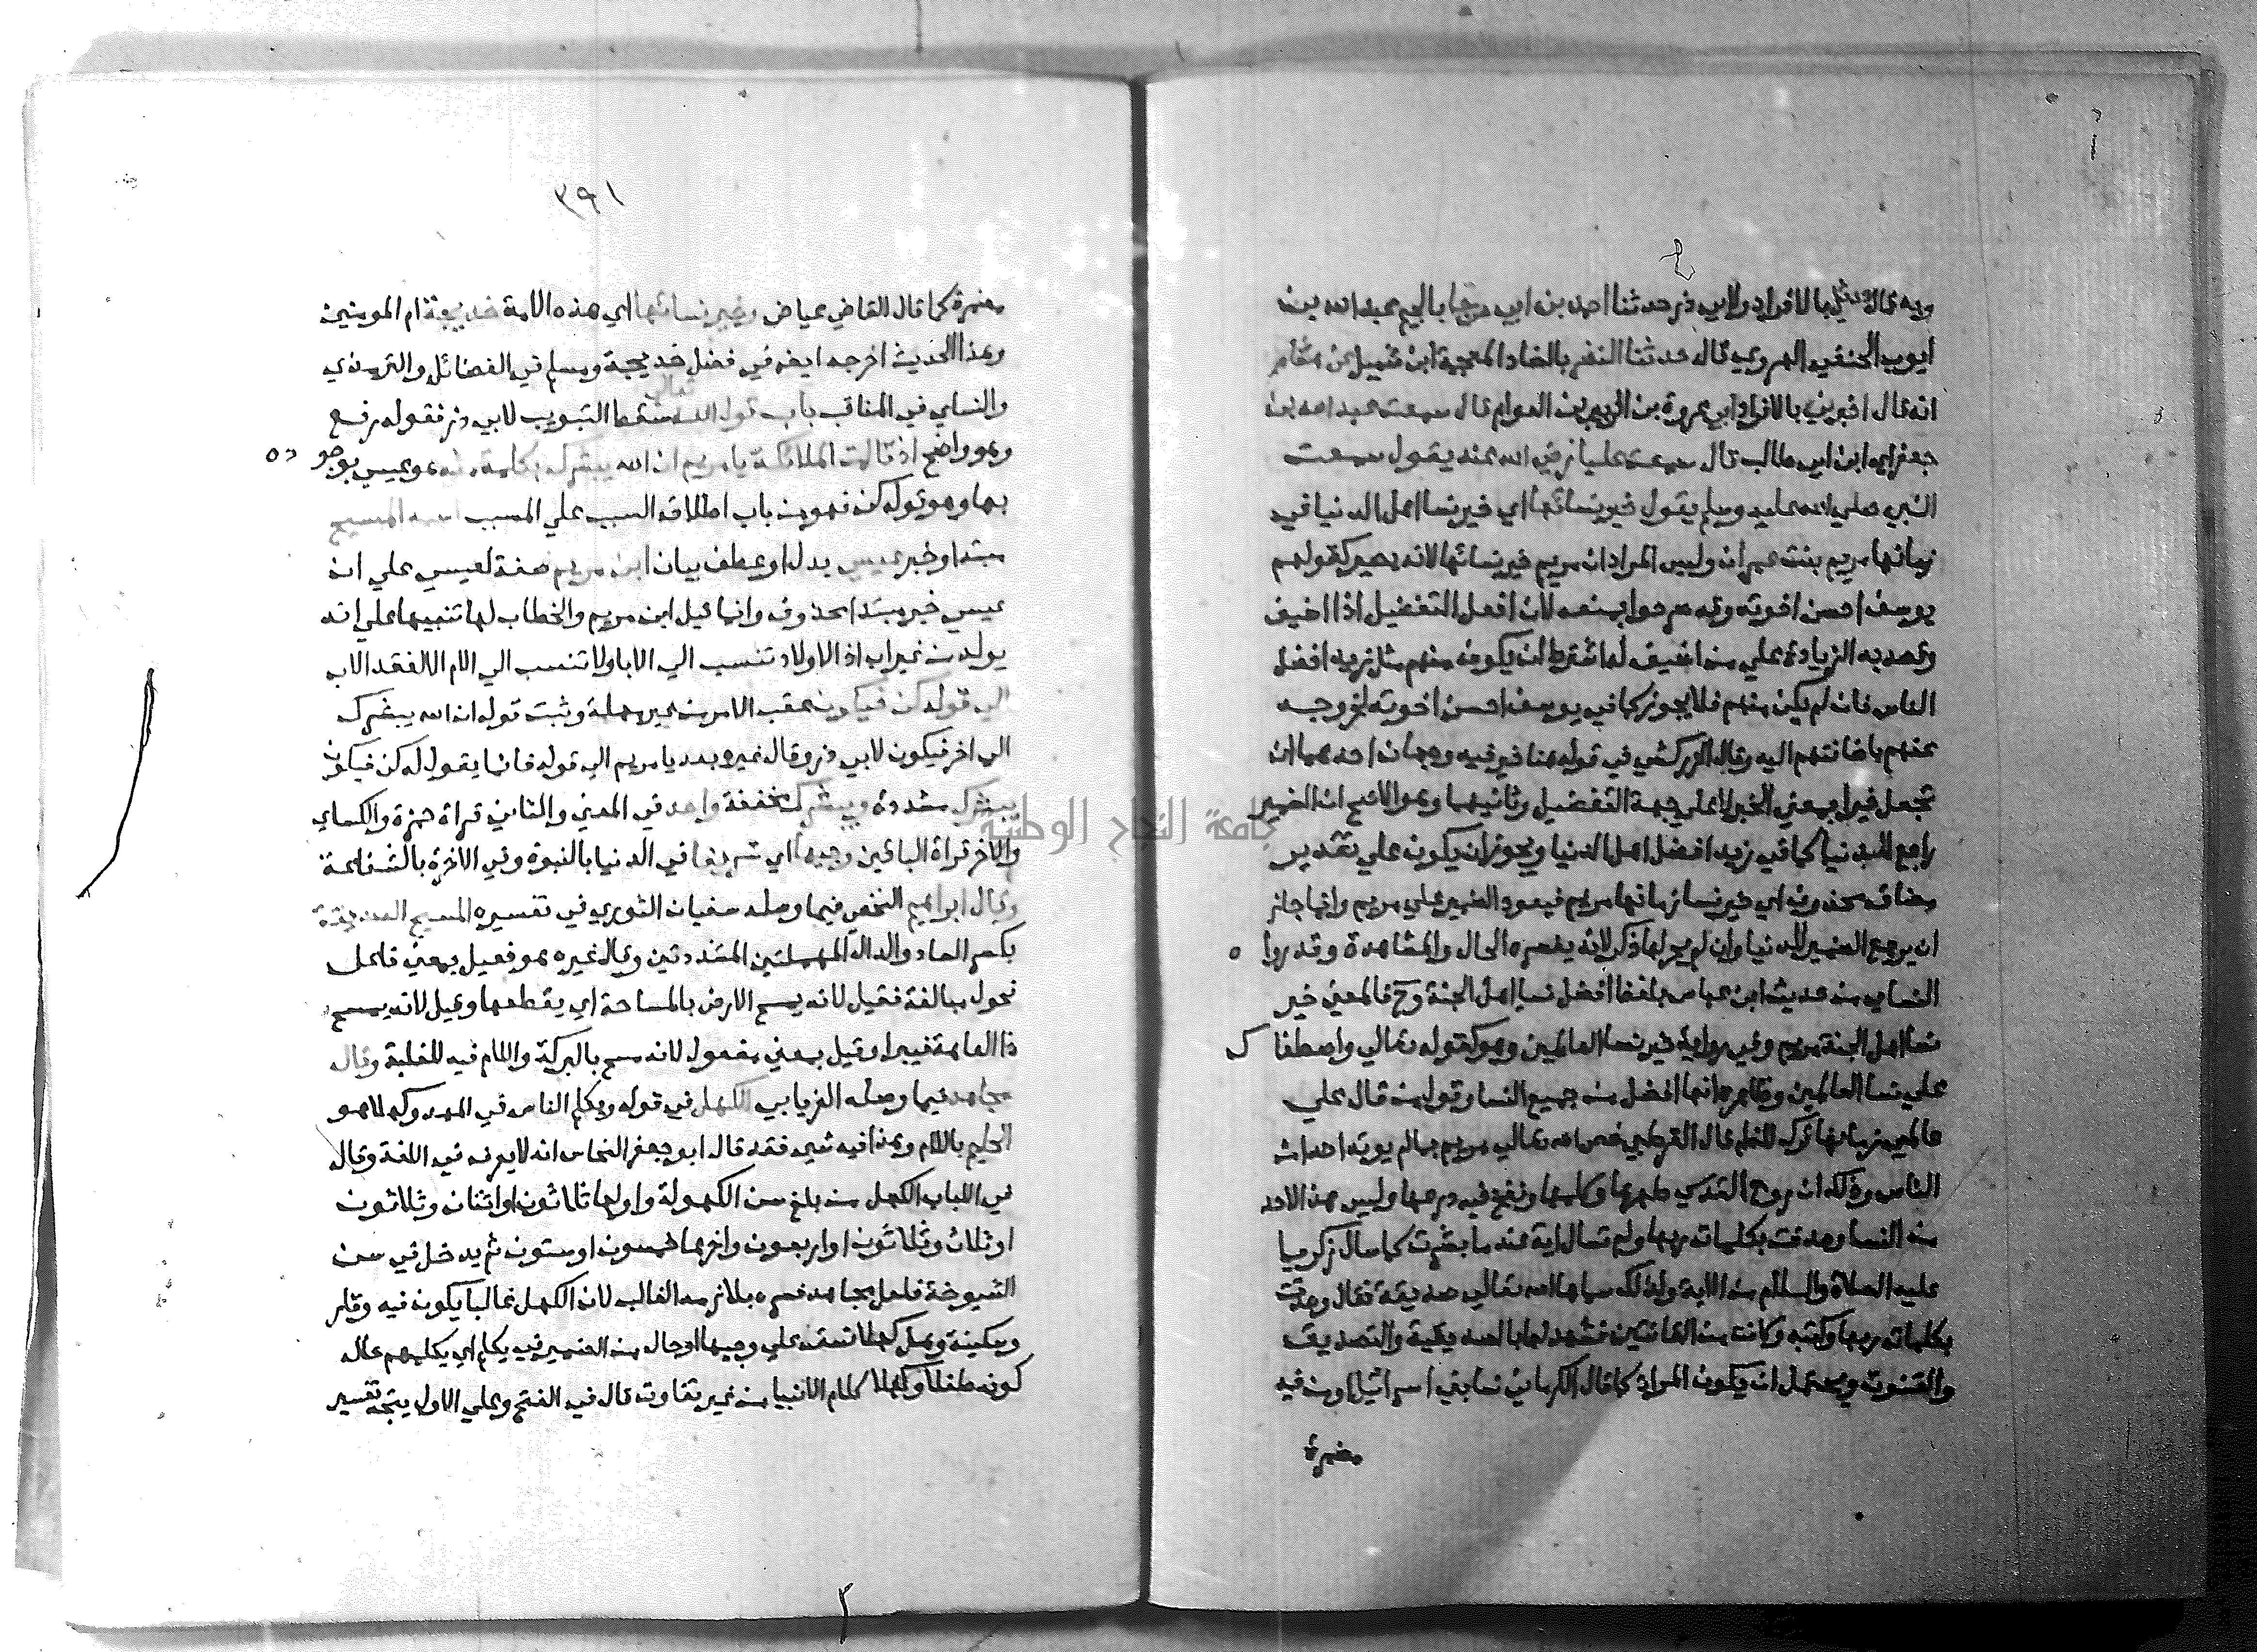 وبه قال حدثني بالافراد ولابي ذر حدثنا احمد بن ابي رجا بالجيم عبد الله بن
ايوب الحنفي الهروي قال حدثنا النضر بالضاد المعجمة ابن شميل عن هشام
انه قال اخبرني بالافراد ابي عروة بن الزبير بن العوام قال سمعت عبد الله بن
جعفر اي ابن ابي طالب قال سمعت عليا رضي الله عنه يقول سمعت
النبي صلي الله عليه وسلم يقول خير نسائها اي خير نسا اهل الدنيا في
زمانها مريم بنت عمران وليس المراد ان مريم خير نسائها لانه يصير كقولهم
يوسف احسن اخوته وقد صرحوا بمنعه لان افعل التفضيل اذا اضيف
وقصد به الزيادة علي من اضيف له اشترط ان يكون منهم مثل زيد افضل
الناس فان لم يكن منهم فلا يجوز كما في يوسف احسن اخوته لخروجه
عنهم باضافتهم اليه وقال الزركشي في قوله هنا خير فيه وجهان احدهما ان
تجعل خير ا بمعني الخير لا علي جهة التفضيل وثانيهما وهو الاصح ان الضمير
راجع للدنيا كما في زيد افضل اهل الدنيا ويجوز ان يكون علي تقدير
مضاف محذوف اي خير نسا زمانها مريم فيعود الضمير علي مريم وانما جاز
ان يرجع الضمير للدنيا وان لم يجر لها ذكر لانه يفسره الحال والمشاهدة وقد روا ه
النساي من حديث ابن عباس بلفظ افضل نسا اهل الجنة وح فالمعني خير
نسا اهل الجنة مريم وفي رواية خير نسا العالمين وهو كقوله تعالي واصطفا ك
علي نسا العالمين وظاهره انها افضل من جميع النسا وقول من قال علي
عالمي زمانها ترك للظاهر قال القرطبي خص الله تعالي مريم بما لم يوته احدا من
الناس وذلك ان روح القدس طهرها وكلمها ونفخ في درعها وليس هذا لاحد
من النسا وصدقت بكلمات ربها ولم تسال اية عندما بشرت كما سال زكريا
عليه الصلاة والسلام من الاية ولذلك سماها الله تعالي صديقة فقال وصدقت
بكلمات ربها وكتبه وكانت من القانتين فشهد لها بالصديقية والتصديق
والقنوت ويحتمل ان يكون المراد كما قال الكرماني نسا بني اسرائيل او من فيه
مضمرة
٣٩١
مضمرة كما قال القاضي عياض وخير نسائها اي هذه الامة خديجة ام المومنين
وهذا الحديث اخرجه ايضا في فضل خديجة ومسلم في الفضائل والترمذي
والنساي في المناقب باب قول الله تعالي سقط التبويب لابي ذر فقوله رفع
وهو واضح اذ قالت الملائكة يا مريم ان الله يبشرك بكلمة منه هو عيسي بوجو ده
بها وهو قوله كن فهو من باب اطلاق السبب علي المسبب اسمه المسيح
مبتدا وخبر عيسي بدل او عطف بيان ابن مريم صفة لعيسي علي ان
عيسي خبر مبتدا محذوف وانما قيل ابن مريم والخطاب لها تنبيها علي انه
يولد من غير اب اذ الاولاد تنسب الي الابا ولا تنسب الي الام الا لفقد الاب
الي قوله كن فيكون عقب الامر من غير مهملة وثبت قوله ان الله يبشرك
الي اخر فيكون لابي ذر وقال غيره بعد يا مريم الي قوله فانما يقول له كن فيكون
يبشرك مشددة ويبشرك مخففة واحد في المعني والثاني قراة حمزة والكساي
والاخر قراة الباقين وجيها اي شريفا في الدنيا بالنبوة وفي الاخرة بالشفاعة
وقال ابراهيم النخعي فيما وصله سفيان الثوري في تفسيره المسيح الصديق
بكسر الصاد والدال المهملتين المشددتين وقال غيره هو فعيل بمعني فاعل
فحول مبالغة فقيل لانه يمسح الارض بالمساحة اي يقطعها وقيل لانه يمسح
ذا العاهة فيبرا وقيل بمعني مفعول لانه مسح بالبركة واللام فيه للغلبة وقال
مجاهد فيما وصله الفريابي الكهل في قوله ويكلم الناس في المهد وكهلا هو
الحليم باللام وهذا فيه شي فقد قال ابو جعفر النحاس انه لا يعرف في اللغة وقال
في اللباب الكهل من بلغ سن الكهولة واولها ثلاثون او اثنان وثلاثون
او ثلاث وثلاثون او اربعون واخرها خمسون او ستون ثم يدخل في سن
الشيوخة فلعل مجاهد فسره بلازمه الغالب لان الكهل غالبا يكون فيه وقار
وسكينة وهل كهلا نسق علي وجيها او حال من الضمير في يكلم اي يكلمهم حال
كونه طفلا وكهلا كلام الانبيا من غير تفاوت قال في الفتح وعلي الاول يتجه تفسير
جامعة النجاح الوطنية